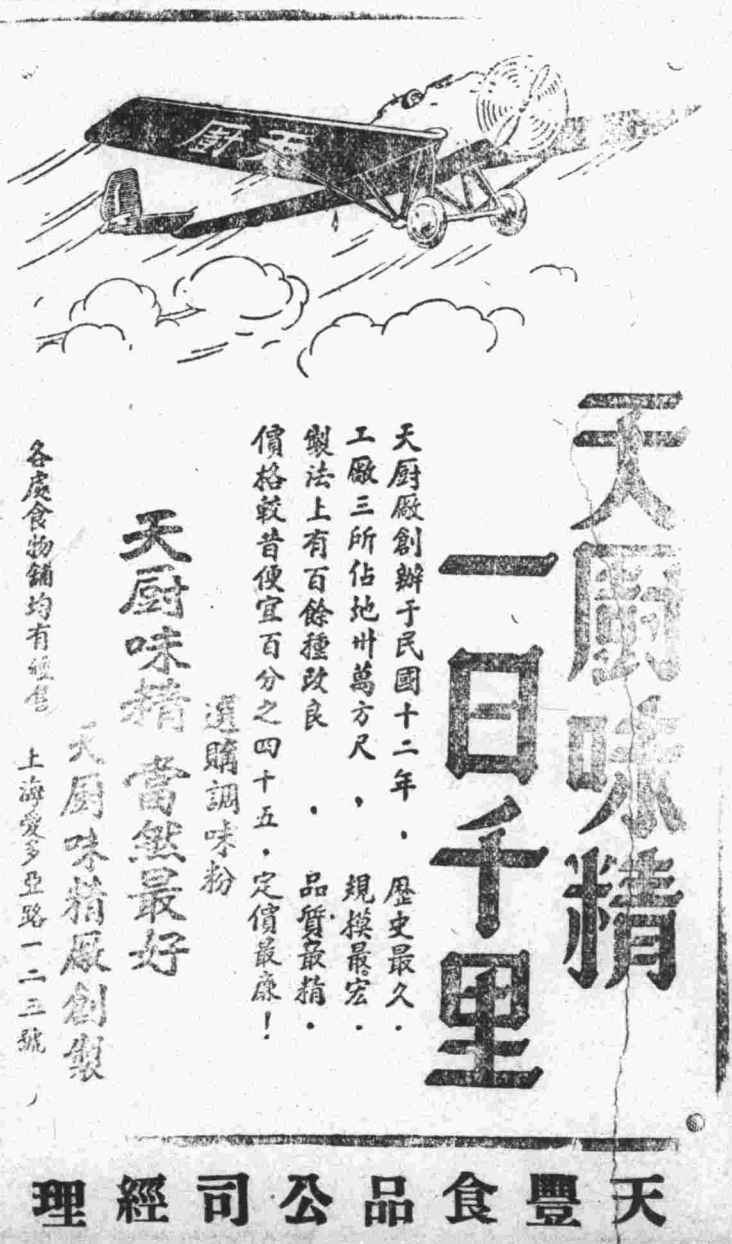 天厨
天厨味精
一日千里
天厨厰創辦于民國十二年，歷史最久．
工厰三所佔地卅萬方尺，規模最宏．
製法上有百餘種改良，品質最精．
價格較昔便宜百分之四十五．定價最廉！
選購調味粉
天厨味精當然最好
天厨味精厰創製
各處食物舖均有經售 上海愛多亞路一二三號
天豐食品公司經理